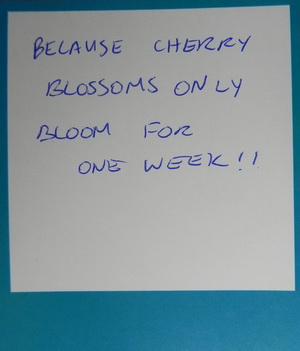 BECAUSE CHERRY
BLOSSOMS ONLY
BLOOM FOR
ONE WEEK!!